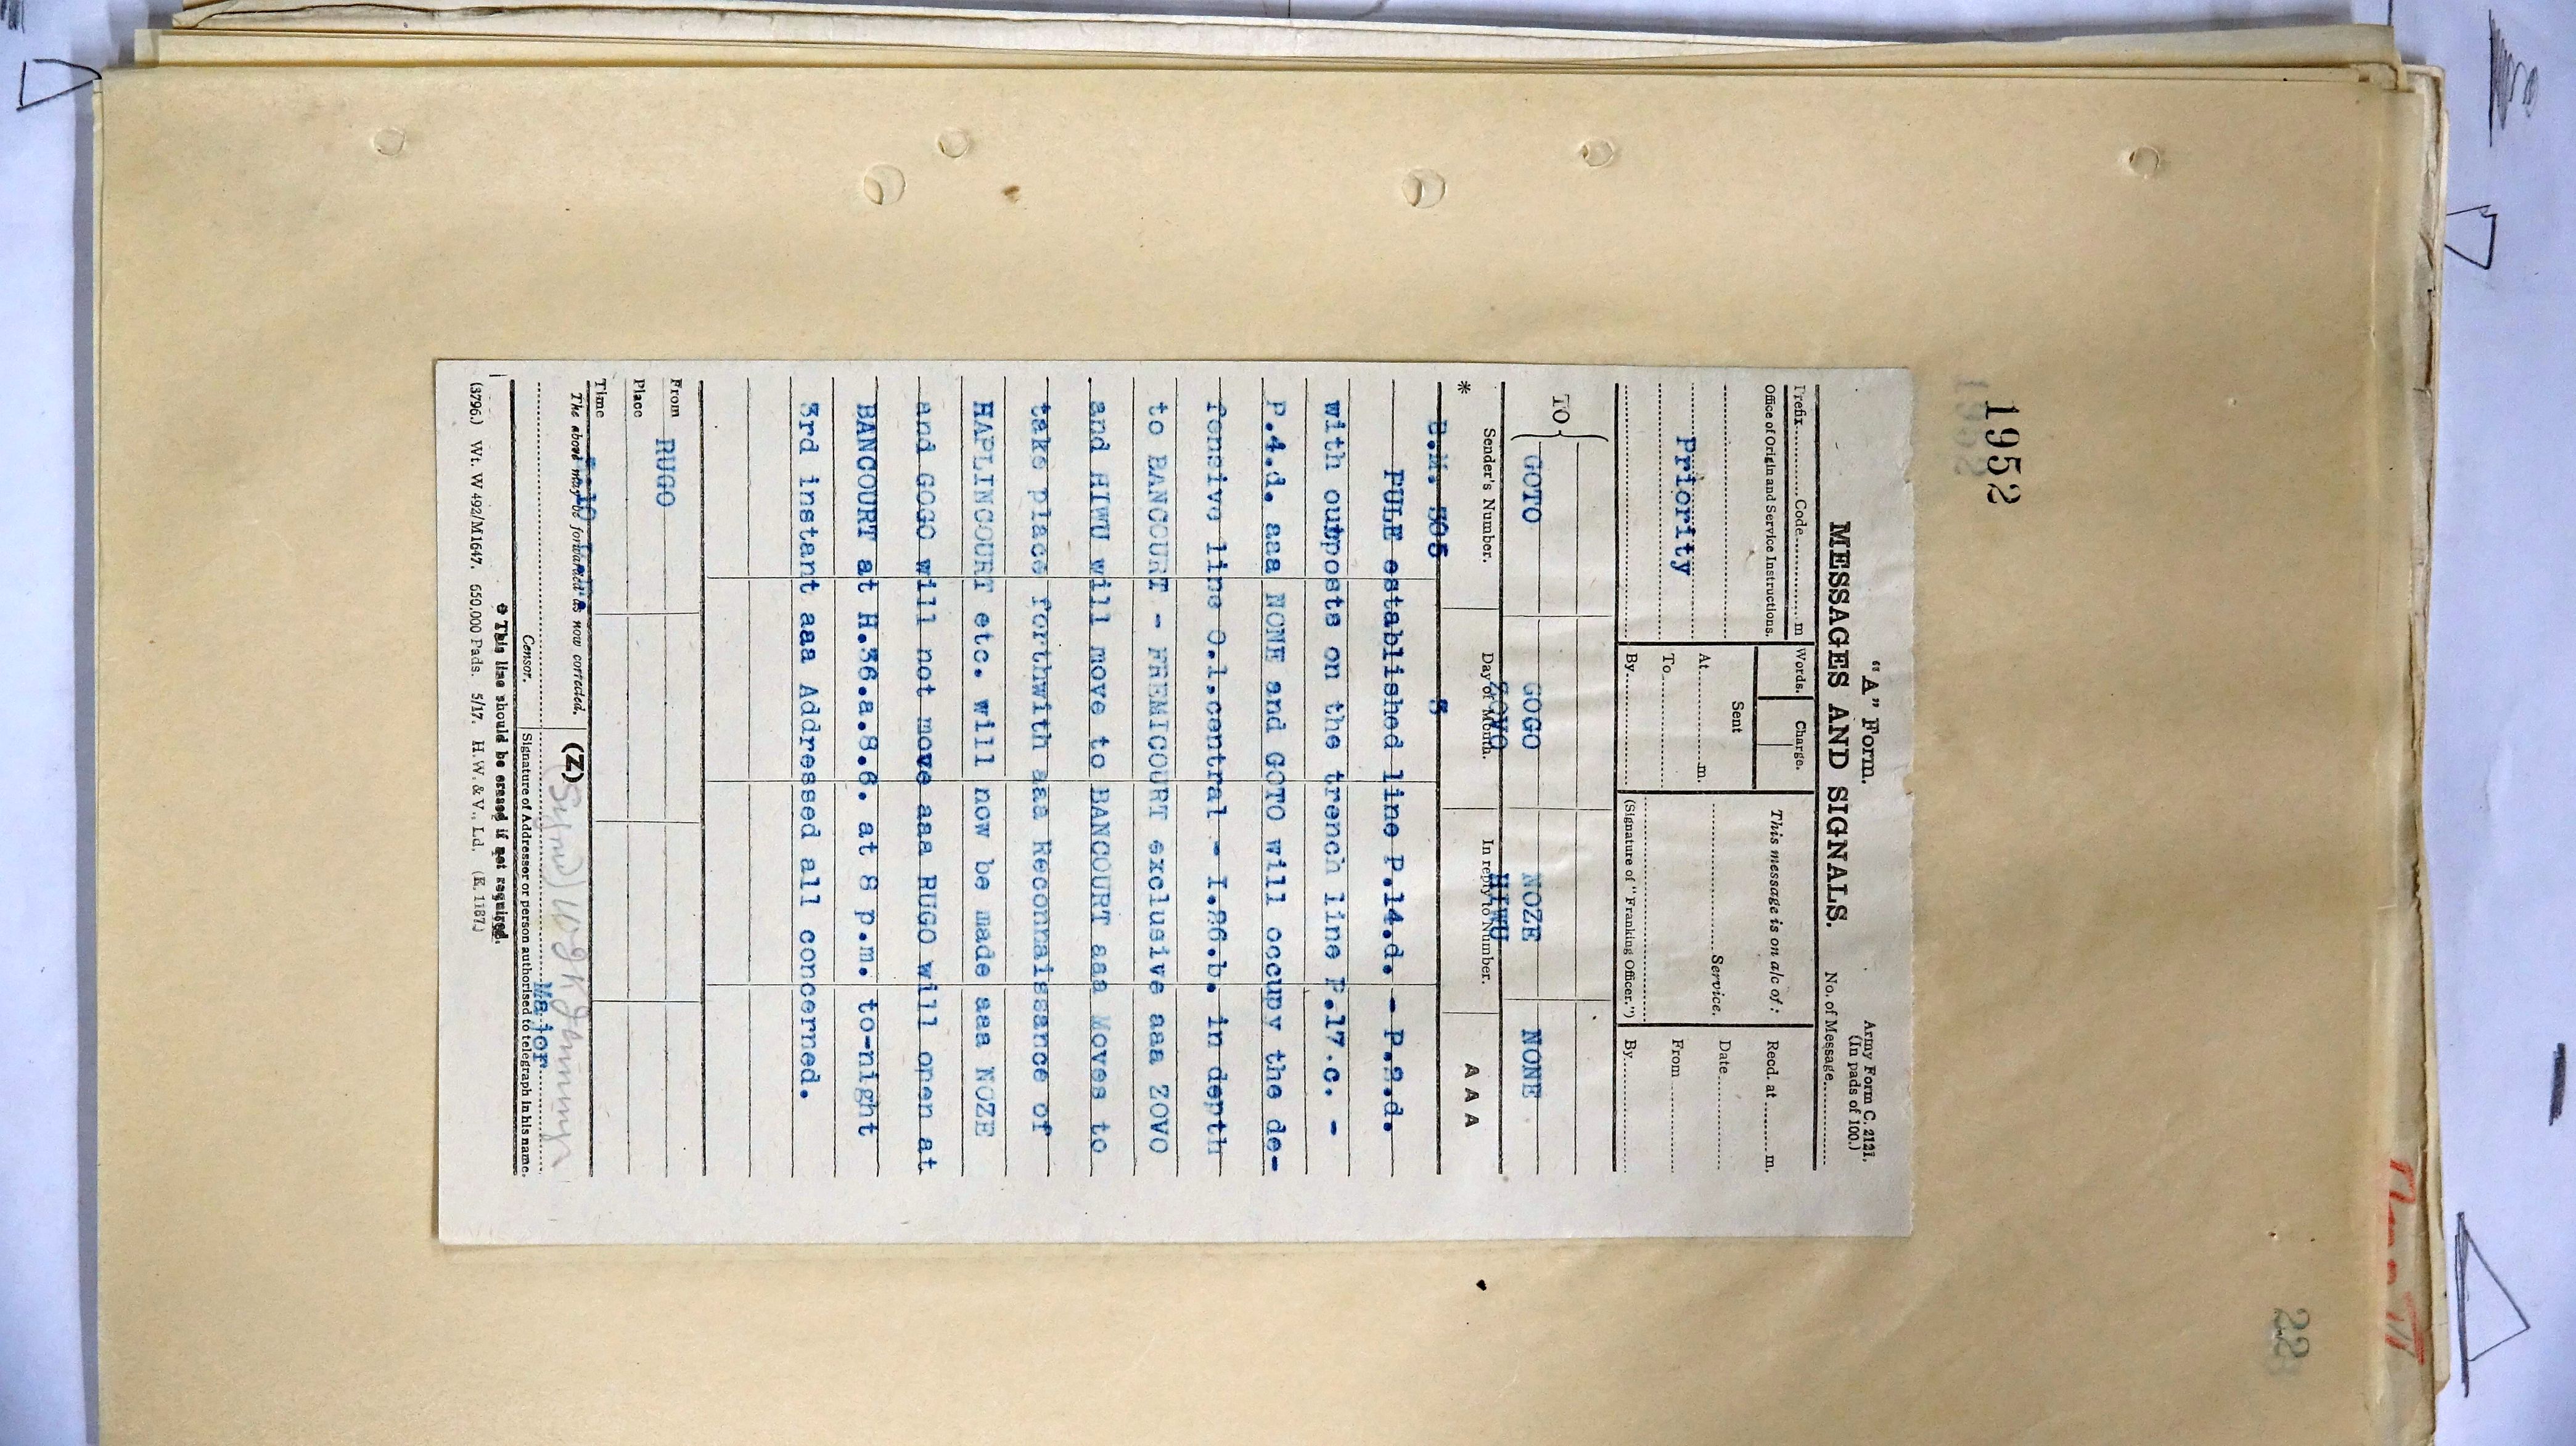 1952
"A" Form.
MESSAGES AND SIGNALS.
Army Form C. 2121.
(In pads of 100.)
No. of Message
Prefix Code m
Words. Charge.
This message is on a/c of :
Recd. at m.
Office of Origin and Service Instructions.
Sent
Date
Priority
At m.
Service.
From
To
By
(Signature of "Franking Officer.")
By
TO
GOTO GOGO NOZE NONE
ZOVO HIWU
* Sender's Number. Day of Month. In reply to Number. A A A
B.M. 505 3
PULE established line P.14.d. - P.9.d.
with outposts on the trench line P.17.c. -
P.4.d. aaa NONE and GOTO will occupy the de-
fensive line O.1.central - I.26.b. in depth
to BANCOURT - FREMICOURT exclusive aaa ZOVO
and HIWU will move to BANCOURT aaa Moves to
take place forthwith aaa Reconnaissance of
HAPLINCOURT etc. will now be made aaa NOZE
and GOGO will not move aaa RUGO will open at
BANCOURT at H.36.a.8.6. at 8 p.m. to-night
3rd instant aaa Addressed all concerned.
From RUGO
Place
Time
The above may be forwarded as now corrected. (Z)
Major
Censor. Signature of Addressor or person authorised to telegraph in his name.
* This line should be erased if not required.
(3796.) Wt. W 492/M1647. 650,000 Pads. 5/17. H.W. & V., Ld. (E. 1187.)